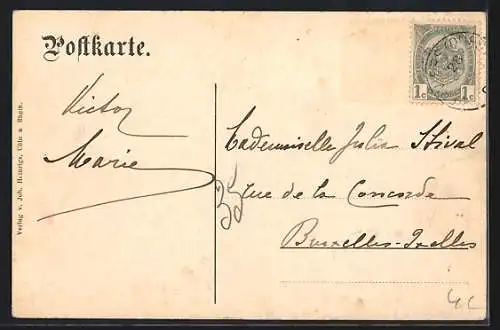 Postkarte.
Victor
Marie
Mademoiselle Julia Stival
35 rue de la Concorde
Bruxelles-Ixelles
Verlag v. Joh. Heinrigs, Cöln a Rhein.
1c 1c